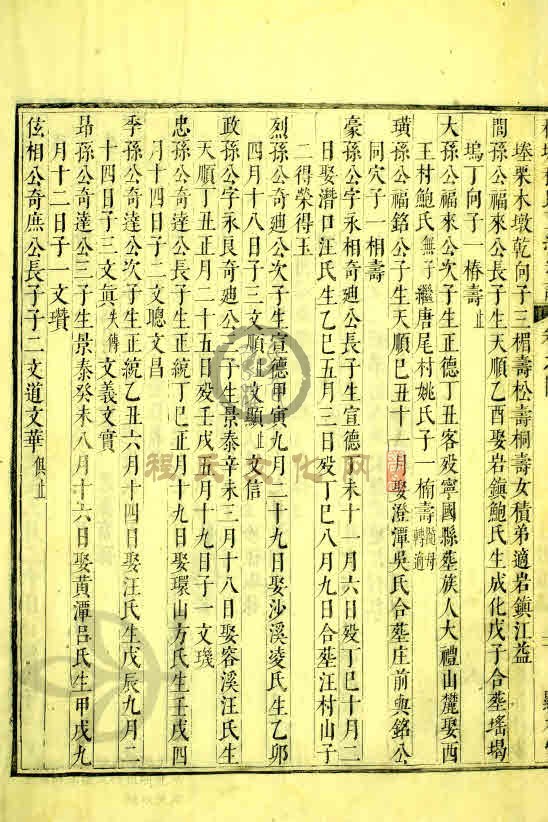 塟栗木墩乾向子三楣壽松壽桐壽女積弟適岩鎮江益
間孫公福來公長子生天順乙酉娶岩鎮鮑氏生成化戊子合塟瑤堨
塢丁向子一椿壽止
大孫公福來公次子生正德丁丑客殁寧國縣塟族人大禮山麓娶西
王村鮑氏無子繼唐尾村姚氏子一椭壽隨母轉適
璜孫公福銘公子生天順己丑十月娶澄潭吳氏合塟庄前與銘公
同穴子一相壽
豪孫公字永相奇廸公長子生宣德未十一月六日殁丁巳十月二
日娶潛口汪氏生乙巳五月三日殁丁巳八月九日合塟汪村山子
二得榮得玉
烈孫公奇廸公次子生宣德甲寅九月二十九日娶沙溪凌氏生乙卯
四月十八日子三文順文顯止文信
政孫公字永良奇廸公子生景泰辛未三月十八日娶容溪汪氏生
天順丁丑正月二十五日殁壬戌五月十九日子一文璣
忠孫公奇達公長子生正統丁巳正月十九日娶環山方氏生壬戌四
月十四日子二文聰文昌
季孫公奇達公次子生正統乙丑六月十四日娶汪氏生戊辰九月二
十四日子三文眞失傳文義文實
昂孫公奇達公三子生景泰癸未八月十六日娶黃潭呂氏生甲戌九
月十二日子一文瓚
伭相公奇庶公長子子二文道文華俱止
程氏文化网